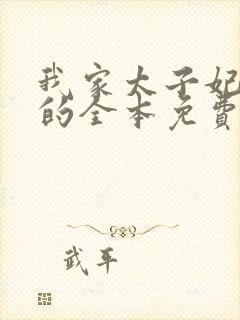 我家太子妃
的全本免费
武平